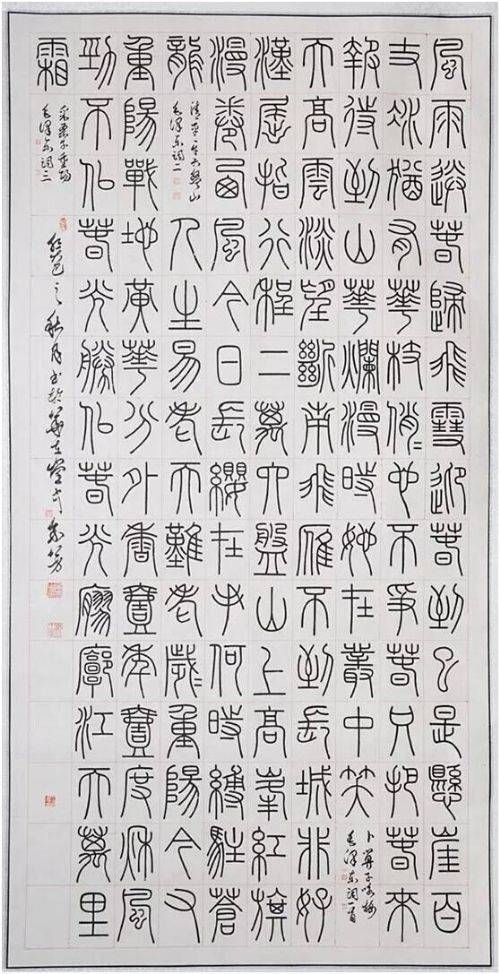 風雨送春歸飛雪迎春到已是懸崖百
丈冰猶有華枝俏=也不爭春只把春來
報待到山華爛漫時她在叢中笑
卜算子咏梅
毛澤東詞一首
天高雲淡望斷南飛雁不到長城非好
漢屈指行程二萬六盤山上高峯紅旗
漫卷西風今日長纓在手何時縛駐蒼
龍
清平樂六盤山
毛澤東詞二
人生易老天難老歲重陽今又
重陽戰地黃華分外香壹年壹度秋風
勁不似春光勝似春光廖廓江天萬里
霜
采桑子重陽
毛澤東詞三
之秋月書於